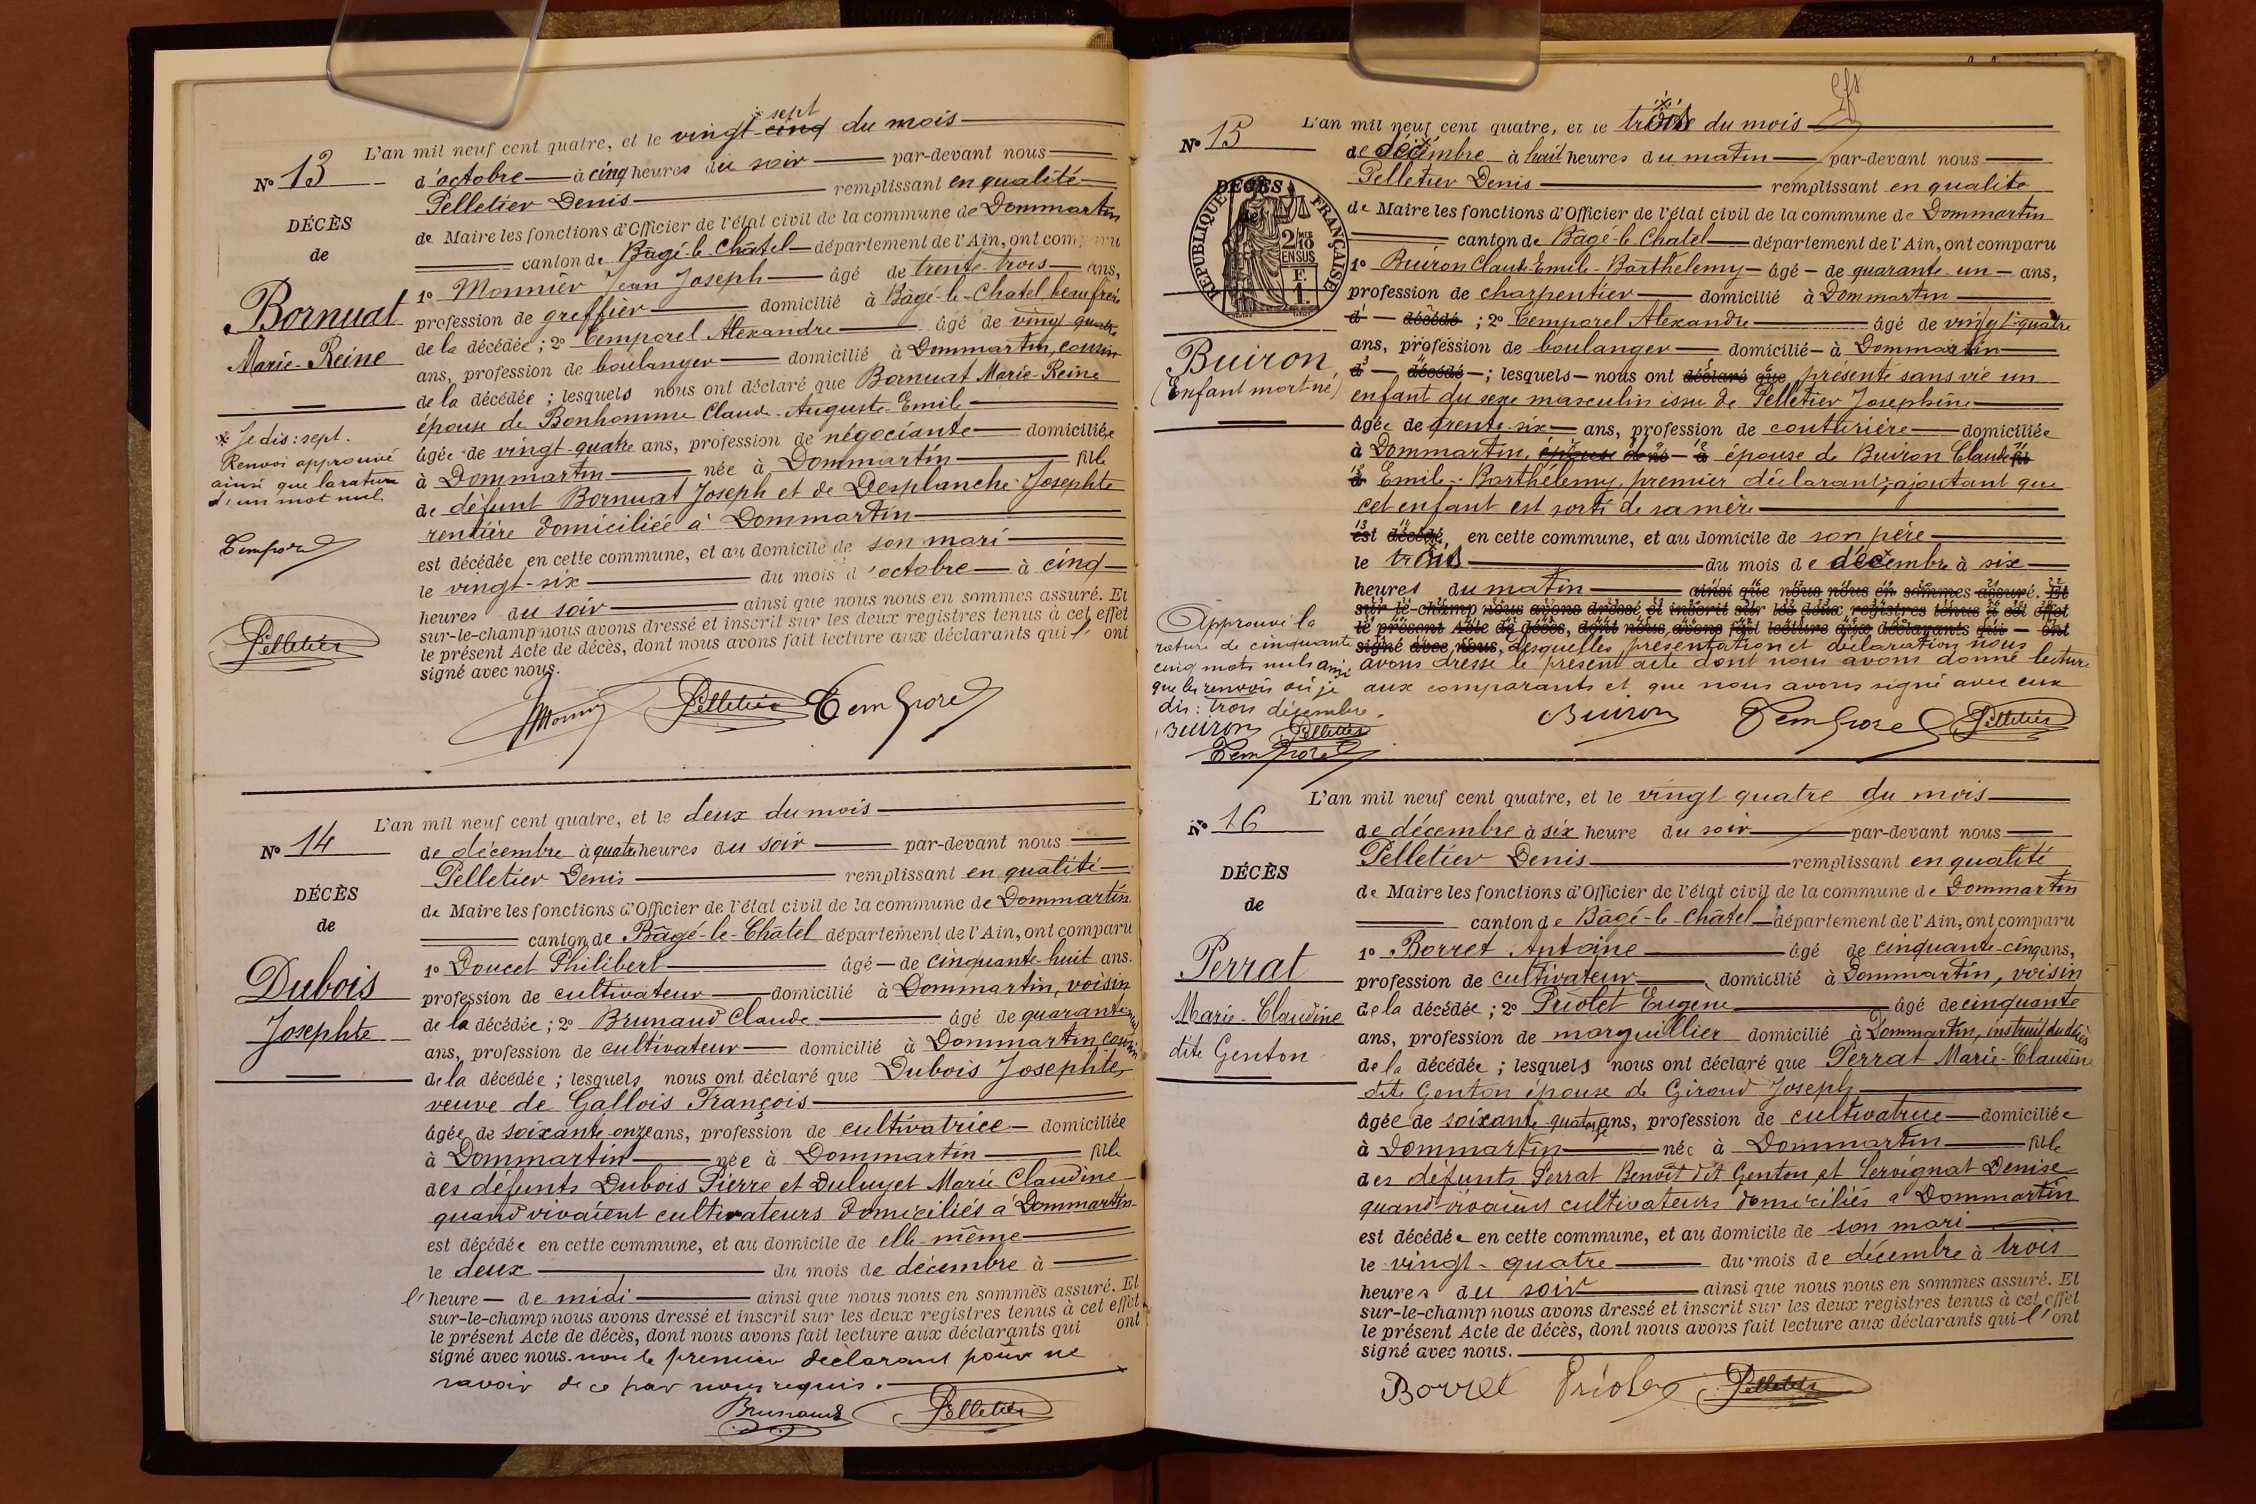 L'an mil neuf cent quatre, et le vingt-cinq sept du mois
N° 13
DÉCÈS
de
Bornuat
Marie-Reine
Je dis : sept.
Renvoi approuvé
ainsi que la rature
d'un mot nul.
Temporel
Pelletier
d'octobre à cinq heures du soir par-devant nous
Pelletier Denis remplissant en qualité
de Maire les fonctions d'Officier de l'état civil de la commune de Dommartin
canton de Bâgé-le-Châtel département de l'Ain, ont comparu
1° Monnier Jean Joseph âgé de trente-trois ans,
profession de greffier domicilié à Bâgé-le-Chatel, beau frère
de la décédée ; 2° Temporel Alexandre âgé de vingt quatre
ans, profession de boulanger domicilié à Dommartin, cousin
de la décédée ; lesquels nous ont déclaré que Bornuat Marie-Reine
épouse de Bonhomme Claude-Auguste-Emile
âgée de vingt-quatre ans, profession de négociante domiciliée
à Dommartin née à Dommartin fille
de défunt Bornuat Joseph et de Desplanche Josephte
rentière domiciliée à Dommartin
est décédée en cette commune, et au domicile de son mari
le vingt-six du mois d'octobre à cinq
heures du soir ainsi que nous nous en sommes assuré. Et
sur-le-champ nous avons dressé et inscrit sur les deux registres tenus à cet effet
le présent Acte de décès, dont nous avons fait lecture aux déclarants qui l'ont
signé avec nous.
Monnier Pelletier Temporel
L'an mil neuf cent quatre, et le deux du mois
N° 14
DÉCÈS
de
Dubois
Josephte
de décembre à quatre heures du soir par-devant nous
Pelletier Denis remplissant en qualité
de Maire les fonctions d'Officier de l'état civil de la commune de Dommartin
canton de Bâgé-le-Châtel département de l'Ain, ont comparu
1° Doucet Philibert âgé de cinquante-huit ans.
profession de cultivateur domicilié à Dommartin, voisin
de la décédée ; 2° Brunaud Claude âgé de quarante
ans, profession de cultivateur domicilié à Dommartin, cousin
de la décédée ; lesquels nous ont déclaré que Dubois Josephte,
veuve de Gallois François
âgée de soixante onze ans, profession de cultivatrice domiciliée
à Dommartin née à Dommartin fille
des défunts Dubois Pierre et Duluyet Marie Claudine
quand vivaient cultivateurs domiciliés à Dommartin
est décédée en cette commune, et au domicile de elle-même
le deux du mois de décembre à
l'heure de midi ainsi que nous nous en sommes assuré. Et
sur-le-champ nous avons dressé et inscrit sur les deux registres tenus à cet effet
le présent Acte de décès, dont nous avons fait lecture aux déclarants qui ont
signé avec nous. non le premier déclarant pour ne
savoir de ce par nous requis.
Brunaud Pelletier
L'an mil neuf cent quatre, et le trois du mois
N° 15
DÉCÈS
de
RÉPUBLIQUE FRANÇAISE
2/10
EN SUS
F.
1.
Buiron
(Enfant mort né)
Approuvé la
rature de cinquante
cinq mots nuls ainsi
que les renvois où je
dis : trois décembre.
Buiron Pelletier
Temporel
de décembre à huit heures du matin par-devant nous
Pelletier Denis remplissant en qualité
de Maire les fonctions d'Officier de l'état civil de la commune de Dommartin
canton de Bâgé-le-Chatel département de l'Ain, ont comparu
1° Buiron Claude Emile-Barthélemy âgé de quarante-un ans,
profession de charpentier domicilié à Dommartin
d décédé ; 2° Temporel Alexandre âgé de vingt-quatre
ans, profession de boulanger domicilié à Dommartin
d décédé ; lesquels nous ont déclaré que présenté sans vie un
enfant du sexe masculin issu de Pelletier Josephine
âgée de trente-six ans, profession de couturière domiciliée
à Dommartin, épouse de Buiron Claude
Emile-Barthélemy, premier déclarant, ajoutant que
cet enfant est sorti de sa mère
est décédé, en cette commune, et au domicile de son père
le trois du mois de décembre à six
heures du matin ainsi que nous nous en sommes assuré. Et
sur-le-champ nous avons dressé et inscrit sur les deux registres tenus à cet effet
le présent Acte de décès, dont nous avons fait lecture aux déclarants qui ont
signé avec nous, desquelles présentation et déclaration nous
avons dressé le présent acte dont nous avons donné lecture
aux comparants et que nous avons signé avec eux
Buiron Temporel Pelletier
L'an mil neuf cent quatre, et le vingt quatre du mois
N° 16
DÉCÈS
de
Perrat
Marie-Claudine
dite Genton
de décembre à six heure du soir par-devant nous
Pelletier Denis remplissant en qualité
de Maire les fonctions d'Officier de l'état civil de la commune de Dommartin
canton de Bâgé-le-Châtel département de l'Ain, ont comparu
1° Borret Antoine âgé de cinquante-cinq ans,
profession de cultivateur domicilié à Dommartin, voisin
de la décédée ; 2° Priolet Eugène âgé de cinquante
ans, profession de marguillier domicilié à Dommartin, instruit du décès
de la décédée ; lesquels nous ont déclaré que Perrat Marie-Claudine
dite Genton épouse de Giroud Joseph
âgée de soixante quatorze ans, profession de cultivatrice domiciliée
à Dommartin née à Dommartin fille
des défunts Perrat Benoît dit Genton et Servignat Denise
quand vivaient cultivateurs domiciliés à Dommartin
est décédée en cette commune, et au domicile de son mari
le vingt-quatre du mois de décembre à trois
heures du soir ainsi que nous nous en sommes assuré. Et
sur-le-champ nous avons dressé et inscrit sur les deux registres tenus à cet effet
le présent Acte de décès, dont nous avons fait lecture aux déclarants qui l'ont
signé avec nous.
Borret Priolet Pelletier